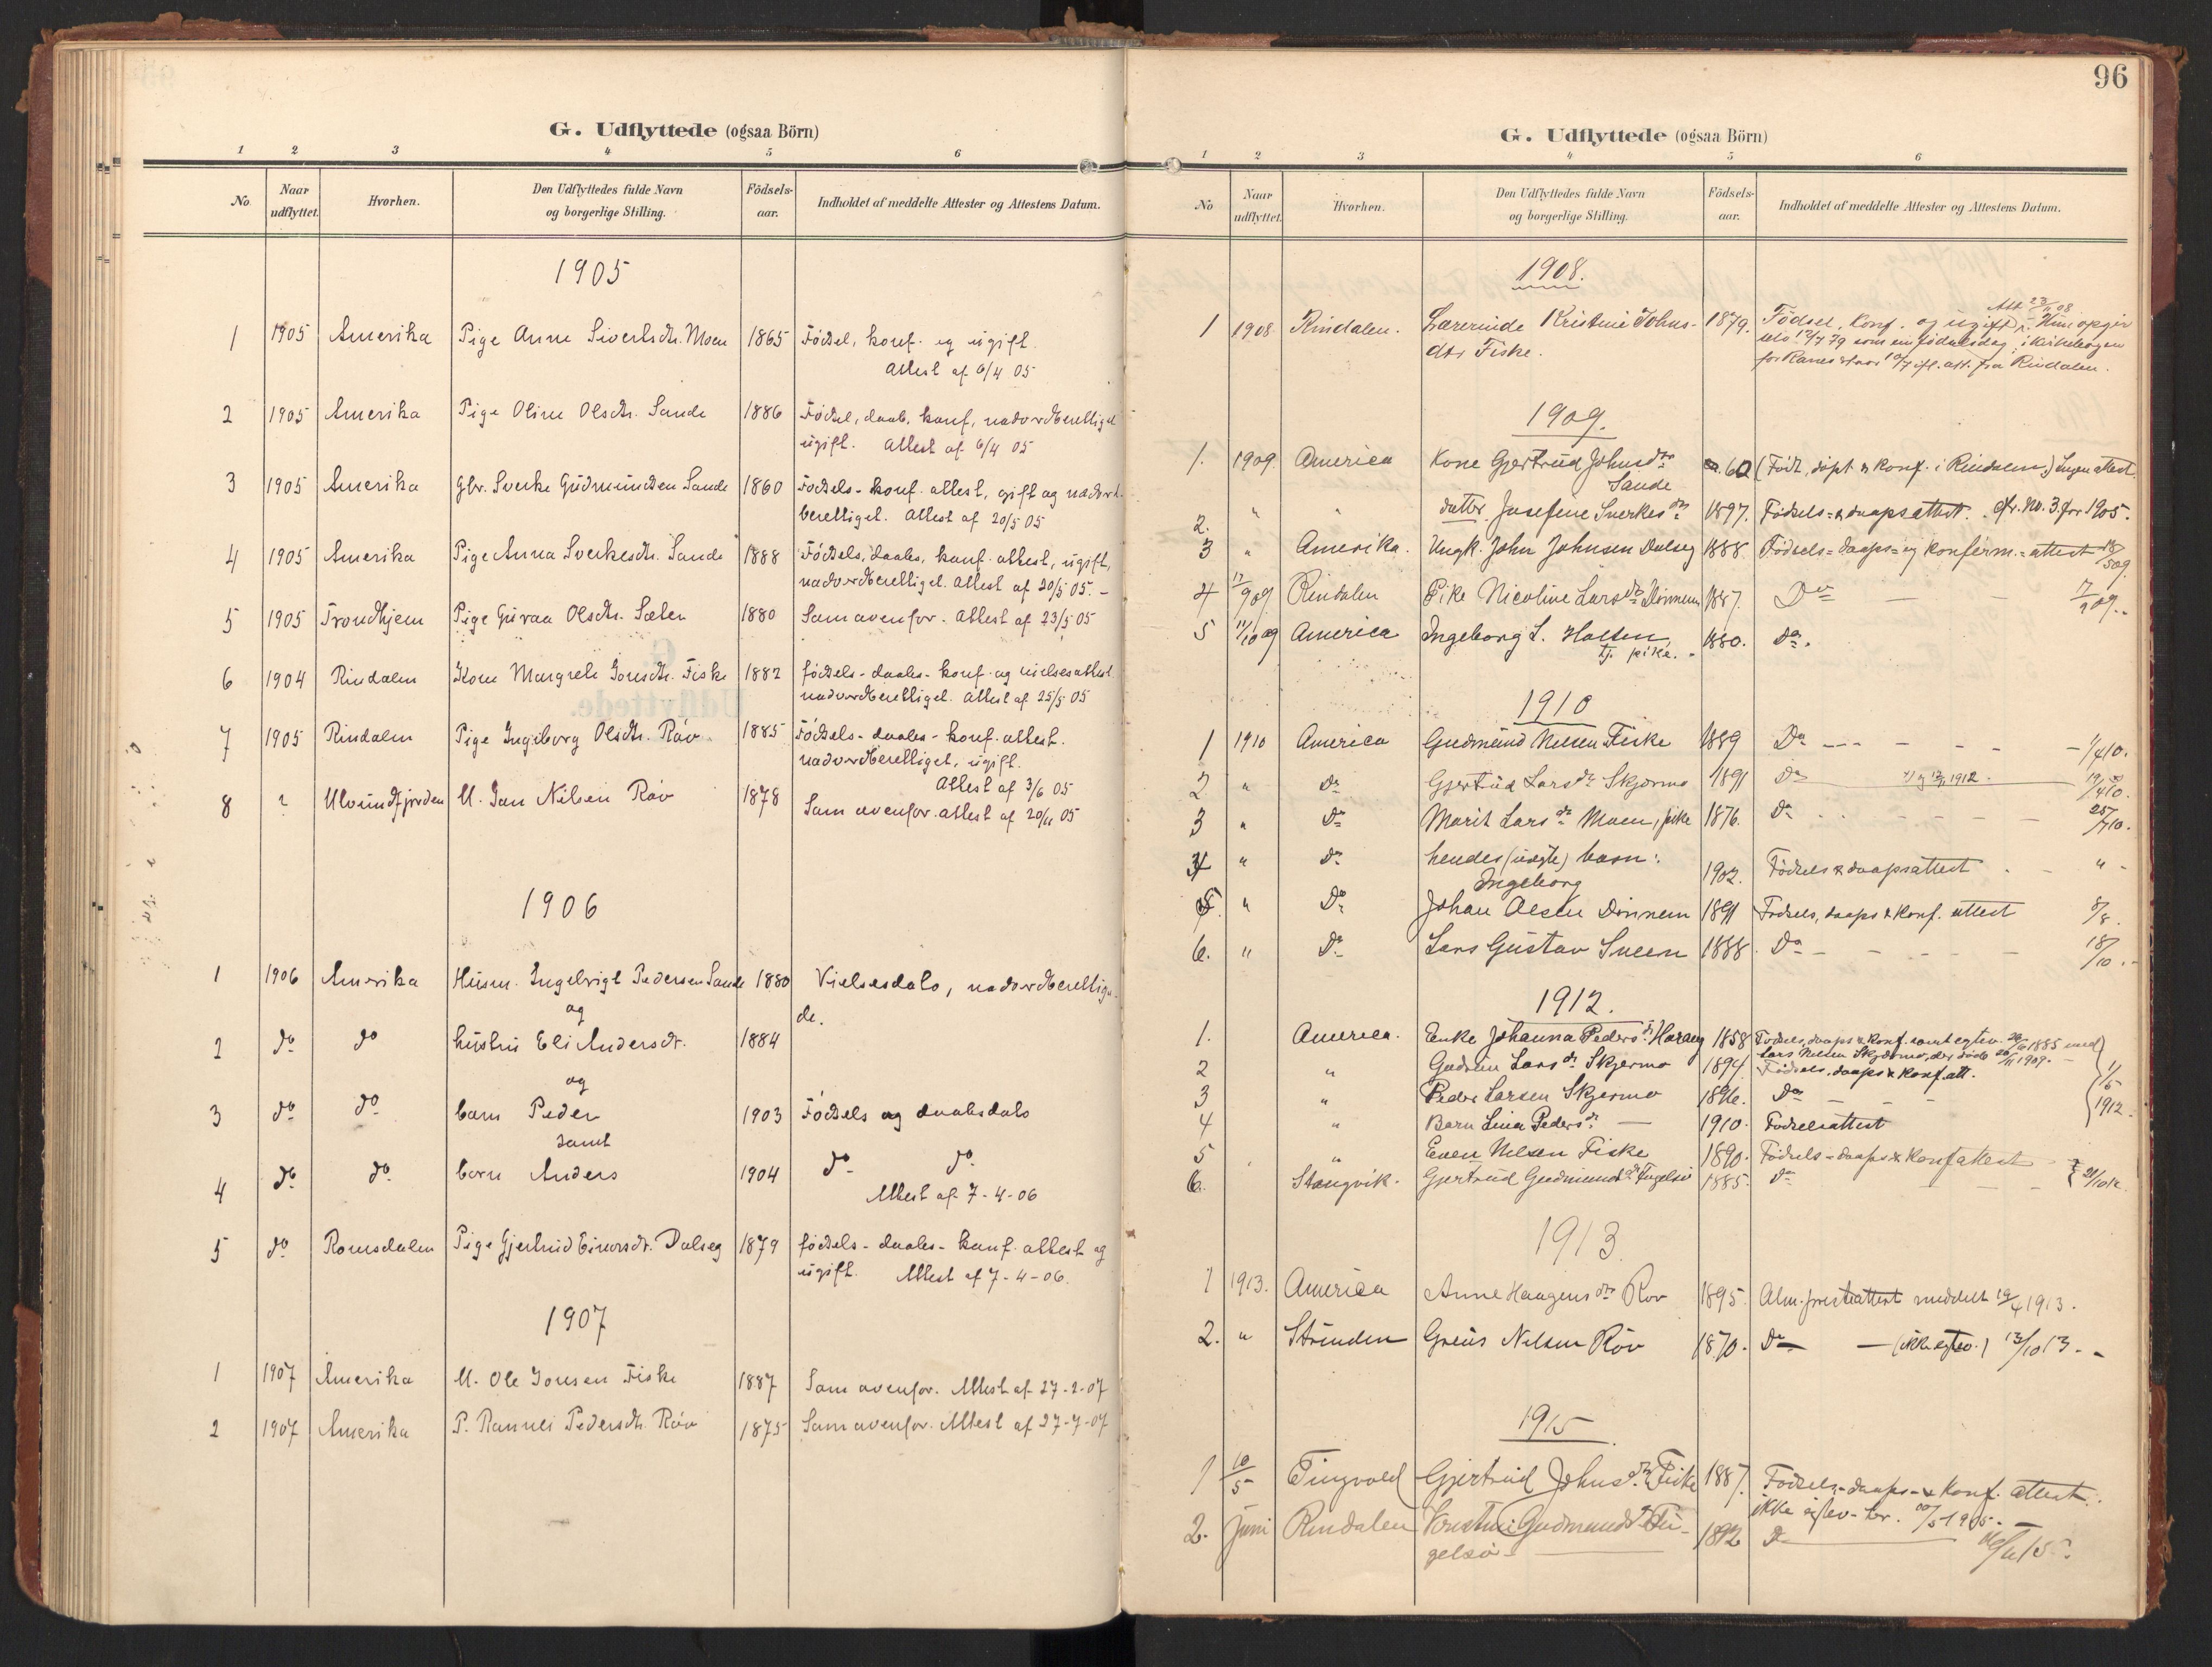 G. Udflyttede (ogsaa Börn)
1 2 3 4 5 6
No. Naar udflyttet. Hvorhen. Den Udflyttedes fulde Navn og borgerlige Stilling. Födsels-aar. Indholdet af meddelte Attester og Attestens Datum.
1905
1 1905 Amerika Pige Anne Sivertsdtr. Moen 1865 Födsel, konf. og ugift
Attest af 6/4 05
2 1905 Amerika Pige Oline Olsdtr. Sande 1886 Födsel, daab, konf, nadverdberettiget
ugift. Attest af 6/4 05
3 1905 Amerika Gbr. Sverke Gudmundsen Sande 1860 Födsels- konf. attest, gift og nadverd-
berettiget. Attest af 20/5 05
4 1905 Amerika Pige Anna Sverkesdtr. Sande 1888 Födsels, daabs, konf. attest, ugift,
nadverdberettiget. Attest af 20/5 05. -
5 1905 Trondhjem Pige Guraa Olsdtr. Sæter 1880 Som ovenfor. Attest af 23/5 05
6 1904 Rindalen Kone Margrete Jonsdtr. Fiske 1882 födsels- daabs- konf- og vielsesattest
nadverdberettiget. Attest af 25/5 05
7 1905 Rindalen Pige Ingeborg Olsdtr. Röv 1885 Födsels- daabs- konf. attest.
nadverdberettiget, ugift.
Attest af 3/6 05
8 ? Ulvundfjorden U. Jon Nilsen Röv 1878 Som ovenfor. attest af 20/11 05
1906
1 1906 Amerika Husm. Ingebrigt Pedersen Sande 1880 Vielsesdato, nadverdberettige-
og de.
2 do do hustru Eli Andersdtr. 1884
og
3 do do barn Peder 1903 Födsels og daabsdato
samt
4 do do barn Anders 1904 do do
Attest af 7-4-06
5 do Romsdalen Pige Gjertrud Einarsdtr. Dalseg 1879 födsels- daabs- konf. attest og
ugift. Attest af 7-4-06.
1907
1 1907 Amerika U. Ole Jonsen Fiske 1887 Som ovenfor. Attest af 27-2-07
2 1907 Amerika P. Rannei Pedersdtr. Röv 1875 Som ovenfor. Attest af 27-7-07
96
G. Udflyttede (ogsaa Börn)
1 2 3 4 5 6
No Naar udflyttet. Hvorhen. Den Udflyttedes fulde Navn og borgerlige Stilling. Födsels-aar. Indholdet af meddelte Attester og Attestens Datum.
1908.
1 1908 Rindalen. Lærerinde Kristine Johns- 1879. Födsel, Konf. og ugift. Hun opgir
dtr Fiske. selv 12/7 79 som sin födselsdag, i kirkebogen
for Ranes staar 10/7 ifl. att. fra Rindalen.
1909.
1. 1909 America Kone Gjertrud Johnsdtr 60 (Född, döpt & konf. i Rindalen) Ingen attest.
Sande
2. " " datter Josefine Sverkesdtr 1897. Födsels- & daapsattest. cfr. No. 3 for 1905.
3 " Amerika. Ungk. John Johnsen Dalseg 1888. Födsels- daaps- og konferm.- attest 18/5 09
4 17/9 09 Rindalen Pike Nicoline Larsdtr Dönnem 1887. Do — 17/9 09.
5 11/10 09 America Ingeborg L. Holten, 1880. Do.
tj. pike.
1910
1 1910 America Gudmund Nilsen Fiske 1889 Do - - - - 1/4 10.
2 " Do Gjertrud Larsdtr Skjermo 1891 Do 1912. 19/4 10.
3 " Do Marit Larsdtr Moen, pike 1876. Do - - 25/7 10.
4 " Do hendes (uægte) barn: 1902. Födsels & daapsattest "
Ingeborg
5. " Do Johan Olsen Dönnem 1891 Födsels, daaps & konf. attest 8/8.
6. " Do Lars Gustav Sveen 1888. Do - - 18/10.
1912.
1. America. Enke Johanna Pedersdtr Harang 1858 Födsels, daaps & konf. samt egtev. 1885 med
Lars Nilsen Skjermo, der döde 1909.
2 " Gudrun Larsdtr Skjermo 1894. Födsels, daaps & konf. att.
3 " Peder Larsen Skjermo 1896. Do - - 1/5 1912.
4 " Barn Lina Pedersdtr — 1910. Födselsattest
5 " Even Nilsen Fiske 1890. Födsels- daaps & konf attest
6. Stangvik. Gjertrud Gudmundsdtr Fugelsö 1885. Do 21/10 12.
1913.
1 1913. America Anne Haagensdtr Röv 1895. Alm. presteattest meddelt 19/4 1913.
2. " Strinden Greius Nilsen Röv 1870. Do — (ikke egtev.) 13/10 13. -
1915
1 10/5 Tingvold Gjertrud Johnsdtr Fiske 1887. Födsels- daaps- & konf. attest.
ikke egtev-
2. juni Rindalen Gudmundsdtr Fu- 1892 Do —
gelsö